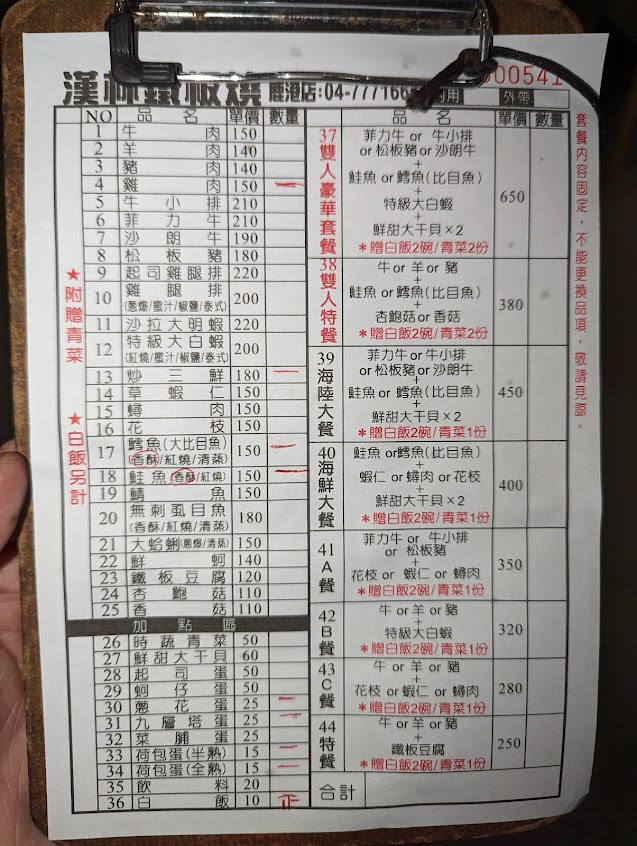 漢林鐵板燒 鹿港店:04-777166 內用 外帶
00541
NO 品名 單價 數量
1 牛肉 150
2 羊肉 140
3 豬肉 140
4 雞肉 150 一
5 牛小排 210
6 菲力牛 210
7 沙朗牛 190
8 松板豬 180
9 起司雞腿排 220
10 雞腿排 200
(蔥爆/蜜汁/椒鹽/泰式)
11 沙拉大明蝦 220
12 特級大白蝦 200
(紅燒/蜜汁/椒鹽/泰式)
13 炒三鮮 180 一
14 草蝦仁 150
15 蟳肉 150
16 花枝 150
17 鱈魚(大比目魚) 150 一
(香酥/紅燒/清蒸)
18 鮭魚(香酥/紅燒) 150 一
19 鯖魚 150
20 無刺虱目魚 180
(香酥/紅燒/清蒸)
21 大蛤蜊(蔥爆/清蒸) 150
22 鮮蚵 140
23 鐵板豆腐 120
24 杏鮑菇 110
25 香菇 110
加點區
26 時蔬青菜 50
27 鮮甜大干貝 60
28 起司蛋 50
29 蚵仔蛋 50
30 蔥花蛋 25 一
31 九層塔蛋 25 一
32 菜脯蛋 25
33 荷包蛋(半熟) 15 一
34 荷包蛋(全熟) 15 一
35 飲料 20
36 白飯 10 正
★附贈青菜 ★白飯另計
品名 單價 數量
37 雙人豪華套餐 650
菲力牛 or 牛小排
or 松板豬 or 沙朗牛
+
鮭魚 or 鱈魚(比目魚)
+
特級大白蝦
+
鮮甜大干貝×2
*贈白飯2碗/青菜2份
38 雙人特餐 380
牛 or 羊 or 豬
+
鮭魚 or 鱈魚(比目魚)
+
杏鮑菇 or 香菇
*贈白飯2碗/青菜2份
39 海陸大餐 450
菲力牛 or 牛小排
or 松板豬 or 沙朗牛
+
鮭魚 or 鱈魚(比目魚)
+
鮮甜大干貝×2
*贈白飯2碗/青菜1份
40 海鮮大餐 400
鮭魚 or 鱈魚(比目魚)
+
蝦仁 or 蟳肉 or 花枝
+
鮮甜大干貝×2
*贈白飯2碗/青菜1份
41 A餐 350
菲力牛 or 牛小排
or 松板豬
+
花枝 or 蝦仁 or 蟳肉
*贈白飯2碗/青菜1份
42 B餐 320
牛 or 羊 or 豬
+
特級大白蝦
*贈白飯2碗/青菜1份
43 C餐 280
牛 or 羊 or 豬
+
花枝 or 蝦仁 or 蟳肉
*贈白飯2碗/青菜1份
44 特餐 250
牛 or 羊 or 豬
+
鐵板豆腐
*贈白飯2碗/青菜1份
合計
套餐內容固定,不能更換品項,敬請見諒。